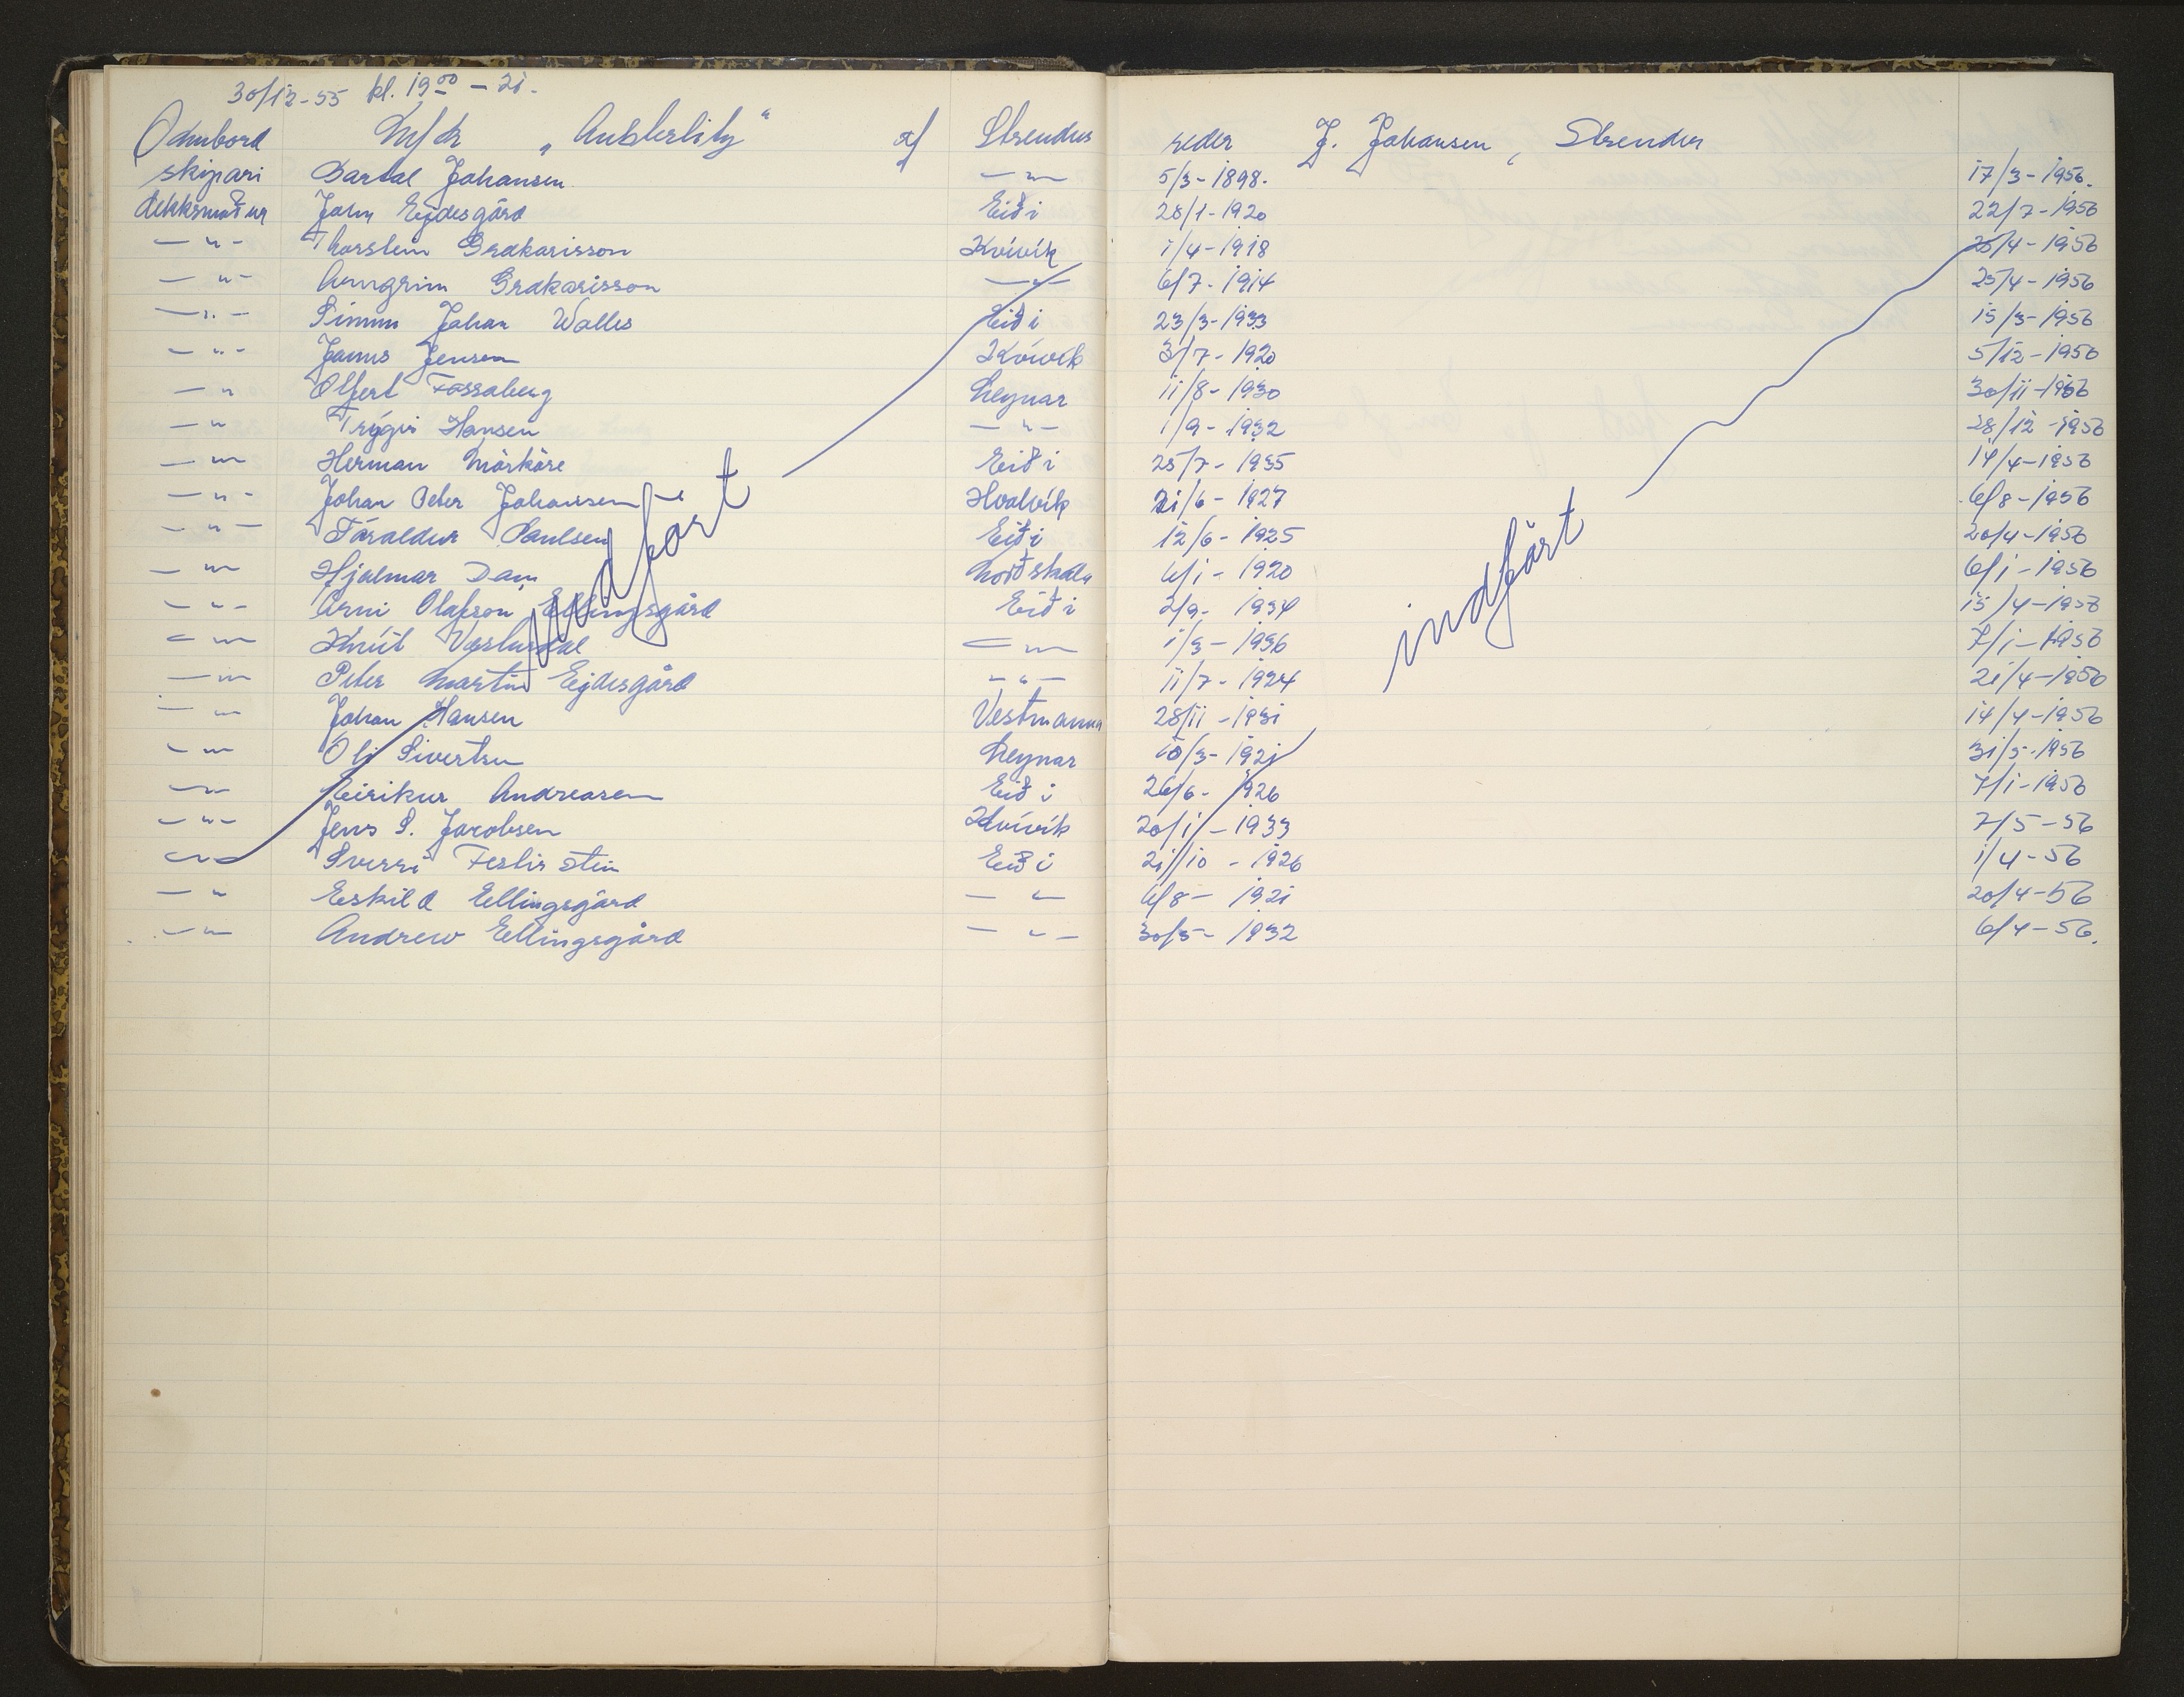 30/12-55 kl. 19⁰⁰ - 21.
Ombord M/sk „Austerlitz“ af Strendur reder J. Johansen, Strender
skipari Bartal Johansen — " — 5/3-1898. 17/3-1956.
dekksmaður John Ejdesgård Eiði 28/1-1920 22/7-1956
— " — Thorstein Grækarisson Kvívík 1/4-1918 25/4-1956
— " — Arngrim Grækarisson — " — 6/7-1914 25/4-1956
— " — Simun Johan Wolles Eiði 23/3-1933 15/3-1956
— " — Janus Jensen Kvívík 3/7-1920 5/12-1956
— " Olfert Fossaberg Leynar 11/8-1930 30/11-1956
— " Trýgvi Hansen — " — 1/9-1932 28/12-1956
— " — Herman Mörköre Eiði 25/7-1935 14/4-1956
— " — Johan Peter Johansen Hvalvík 21/6-1927 6/8-1956
— " — Tóraldur Paulsen Eiði 12/6-1925 20/4-1956
— " — Hjalmar Dam Norðskála 6/1-1920 6/1-1956
— " — Arni Olafson Ellingsgård Eiði 2/9-1934 15/4-1956
— " — Knút Vesturdal — " — 1/3-1936 7/1-1956
— " — Peter Martin Ejdesgård — " — 11/7-1924 21/4-1956
— " — Johan Hansen Vestmanna 28/11-1931 14/4-1956
— " — Oli Sivertsen Leynar 10/3-1921 31/5-1956
— " — Eirikur Andreasen Eiði 26/6-1926 7/1-1956
— " — Jens P. Jacobsen Kvívík 20/1-1933 7/5-56
— " — Sverri Festirstein Eiði 21/10-1926 1/4-56
— " Eskild Ellingsgård — " 6/8-1921 20/4-56
— " — Andrew Ellingsgård — " — 30/5-1932 6/4-56.
indfört
indfört